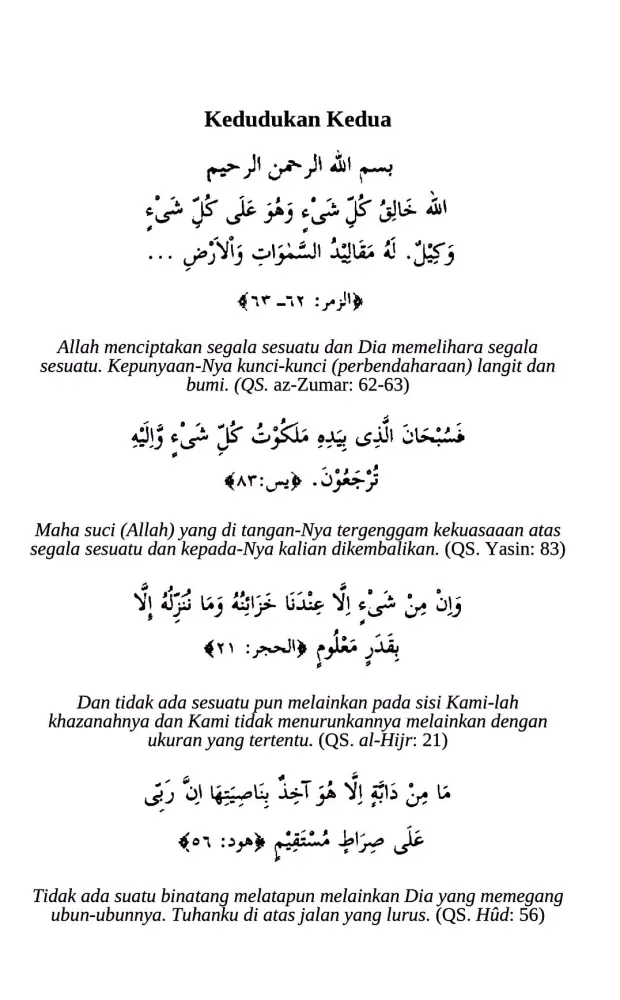 Kedudukan Kedua
بسم الله الرحمن الرحيم
الله خَالِقُ كُلِّ شَىْءٍ وَهُوَ عَلَى كُلِّ شَىْءٍ
وَكِيْلٌ. لَهُ مَقَالِيْدُ السَّمٰوَاتِ وَاْلاَرْضِ ...
﴿الزمر: ٦٢ـ ٦٣﴾
Allah menciptakan segala sesuatu dan Dia memelihara segala
sesuatu. Kepunyaan-Nya kunci-kunci (perbendaharaan) langit dan
bumi. (QS. az-Zumar: 62-63)
فَسُبْحَانَ الَّذِى بِيَدِهِ مَلَكُوْتُ كُلِّ شَىْءٍ وَّاِلَيْهِ
تُرْجَعُوْنَ. ﴿يس:٨٣﴾
Maha suci (Allah) yang di tangan-Nya tergenggam kekuasaaan atas
segala sesuatu dan kepada-Nya kalian dikembalikan. (QS. Yasin: 83)
وَاِنْ مِنْ شَىْءٍ اِلَّا عِنْدَنَا خَزَائِنُهُ وَمَا نُنَزِّلُهُ إِلَّا
بِقَدَرٍ مَعْلُومٍ ﴿الحجر: ٢١﴾
Dan tidak ada sesuatu pun melainkan pada sisi Kami-lah
khazanahnya dan Kami tidak menurunkannya melainkan dengan
ukuran yang tertentu. (QS. al-Hijr: 21)
مَا مِنْ دَابَّةٍ اِلَّا هُوَ آخِذٌ بِنَاصِيَتِهَا اِنَّ رَبِّى
عَلَى صِرَاطٍ مُسْتَقِيْمٍ ﴿هود: ٥٦﴾
Tidak ada suatu binatang melatapun melainkan Dia yang memegang
ubun-ubunnya. Tuhanku di atas jalan yang lurus. (QS. Hûd: 56)